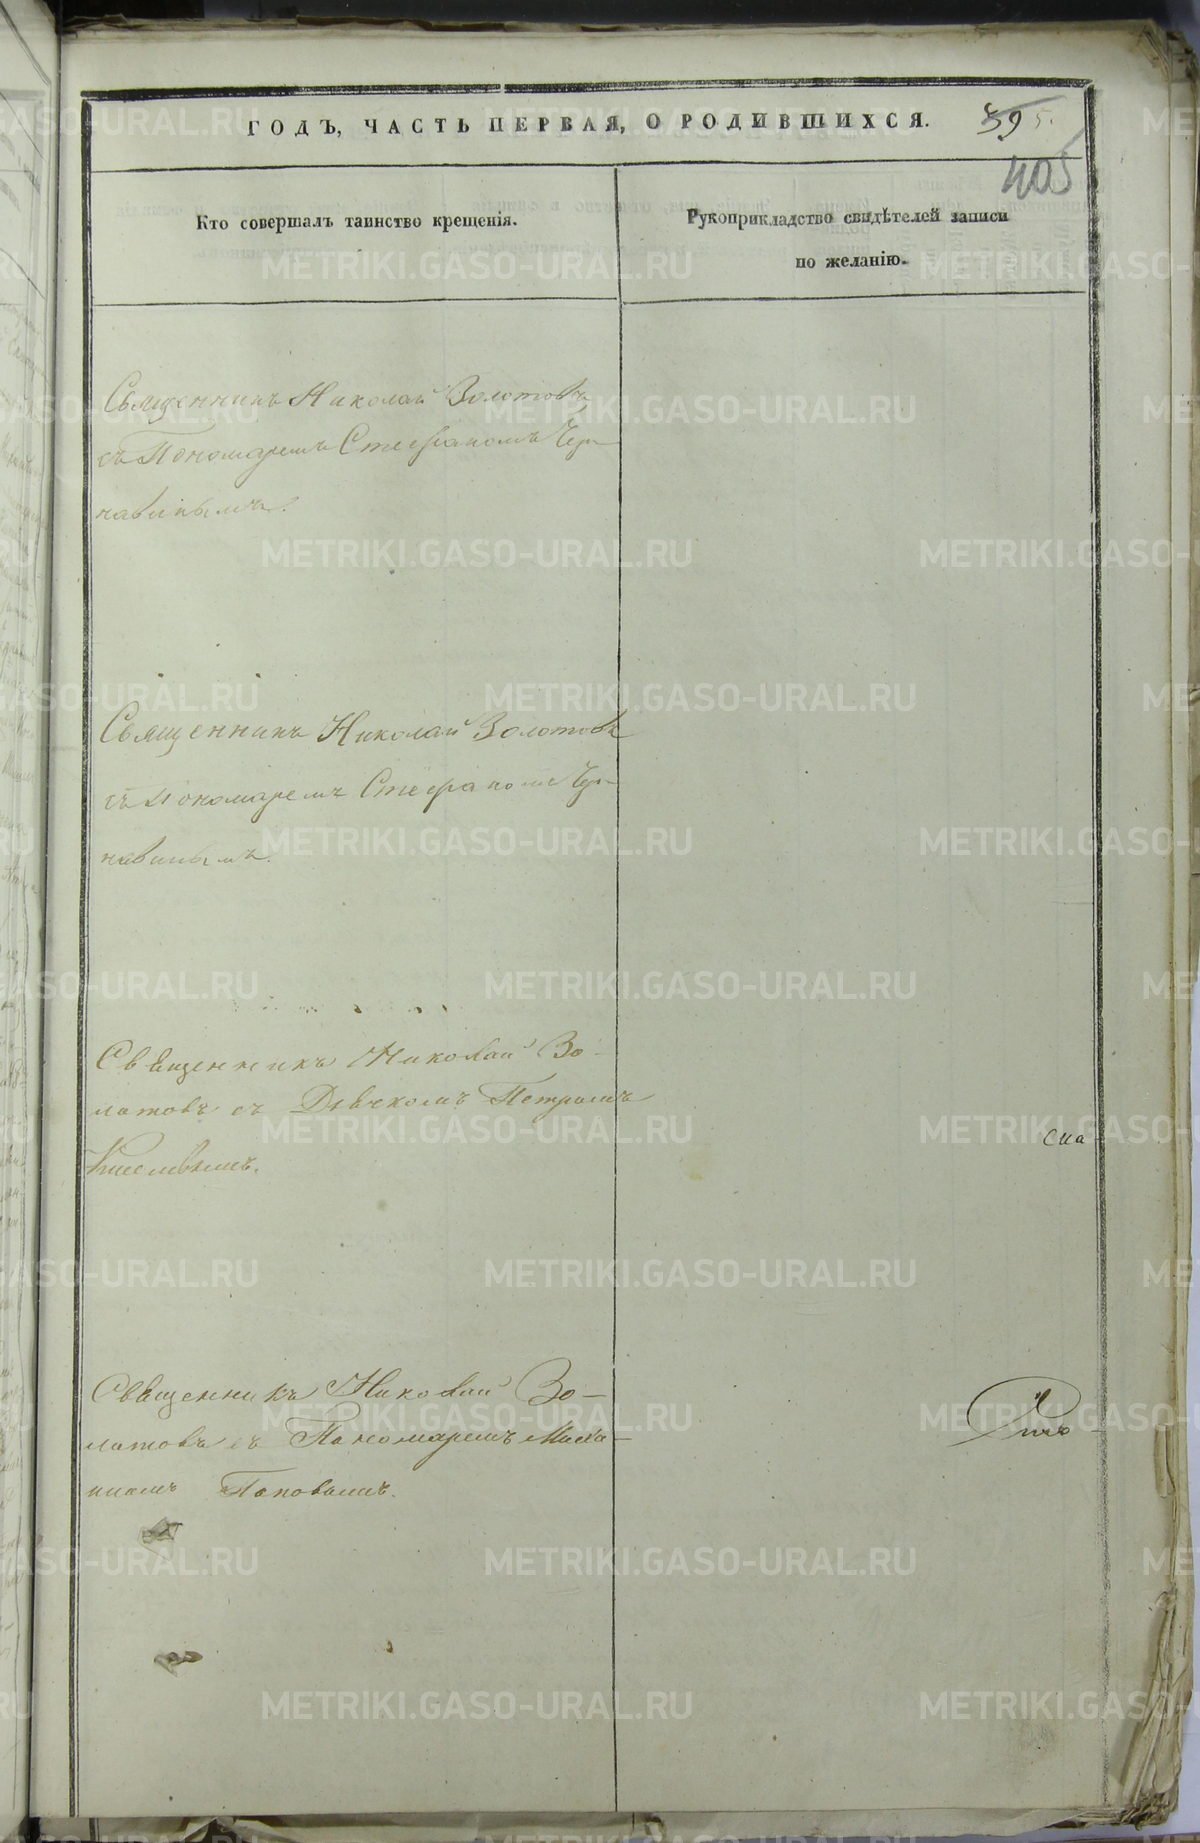 ГОДЪ, ЧАСТЬ ПЕРВАЯ, О РОДИВШИХСЯ.
405
Кто совершалъ таинство крещенія.
Рукоприкладство свидѣтелей записи
по желанію.
Священникъ Николай Золотовъ
съ Пономаремъ Стефаномъ Чер-
навинымъ.
Священникъ Николай Золотовъ
съ Пономаремъ Стефаномъ Чер-
навинымъ.
Священникъ Николай Зо-
лотовъ съ Дьячкомъ Петромъ
Киселевымъ.
ска
Священникъ Николай Зо-
лотовъ съ Пономаремъ
Поповымъ.
METRIKI.GASO-URAL.RU